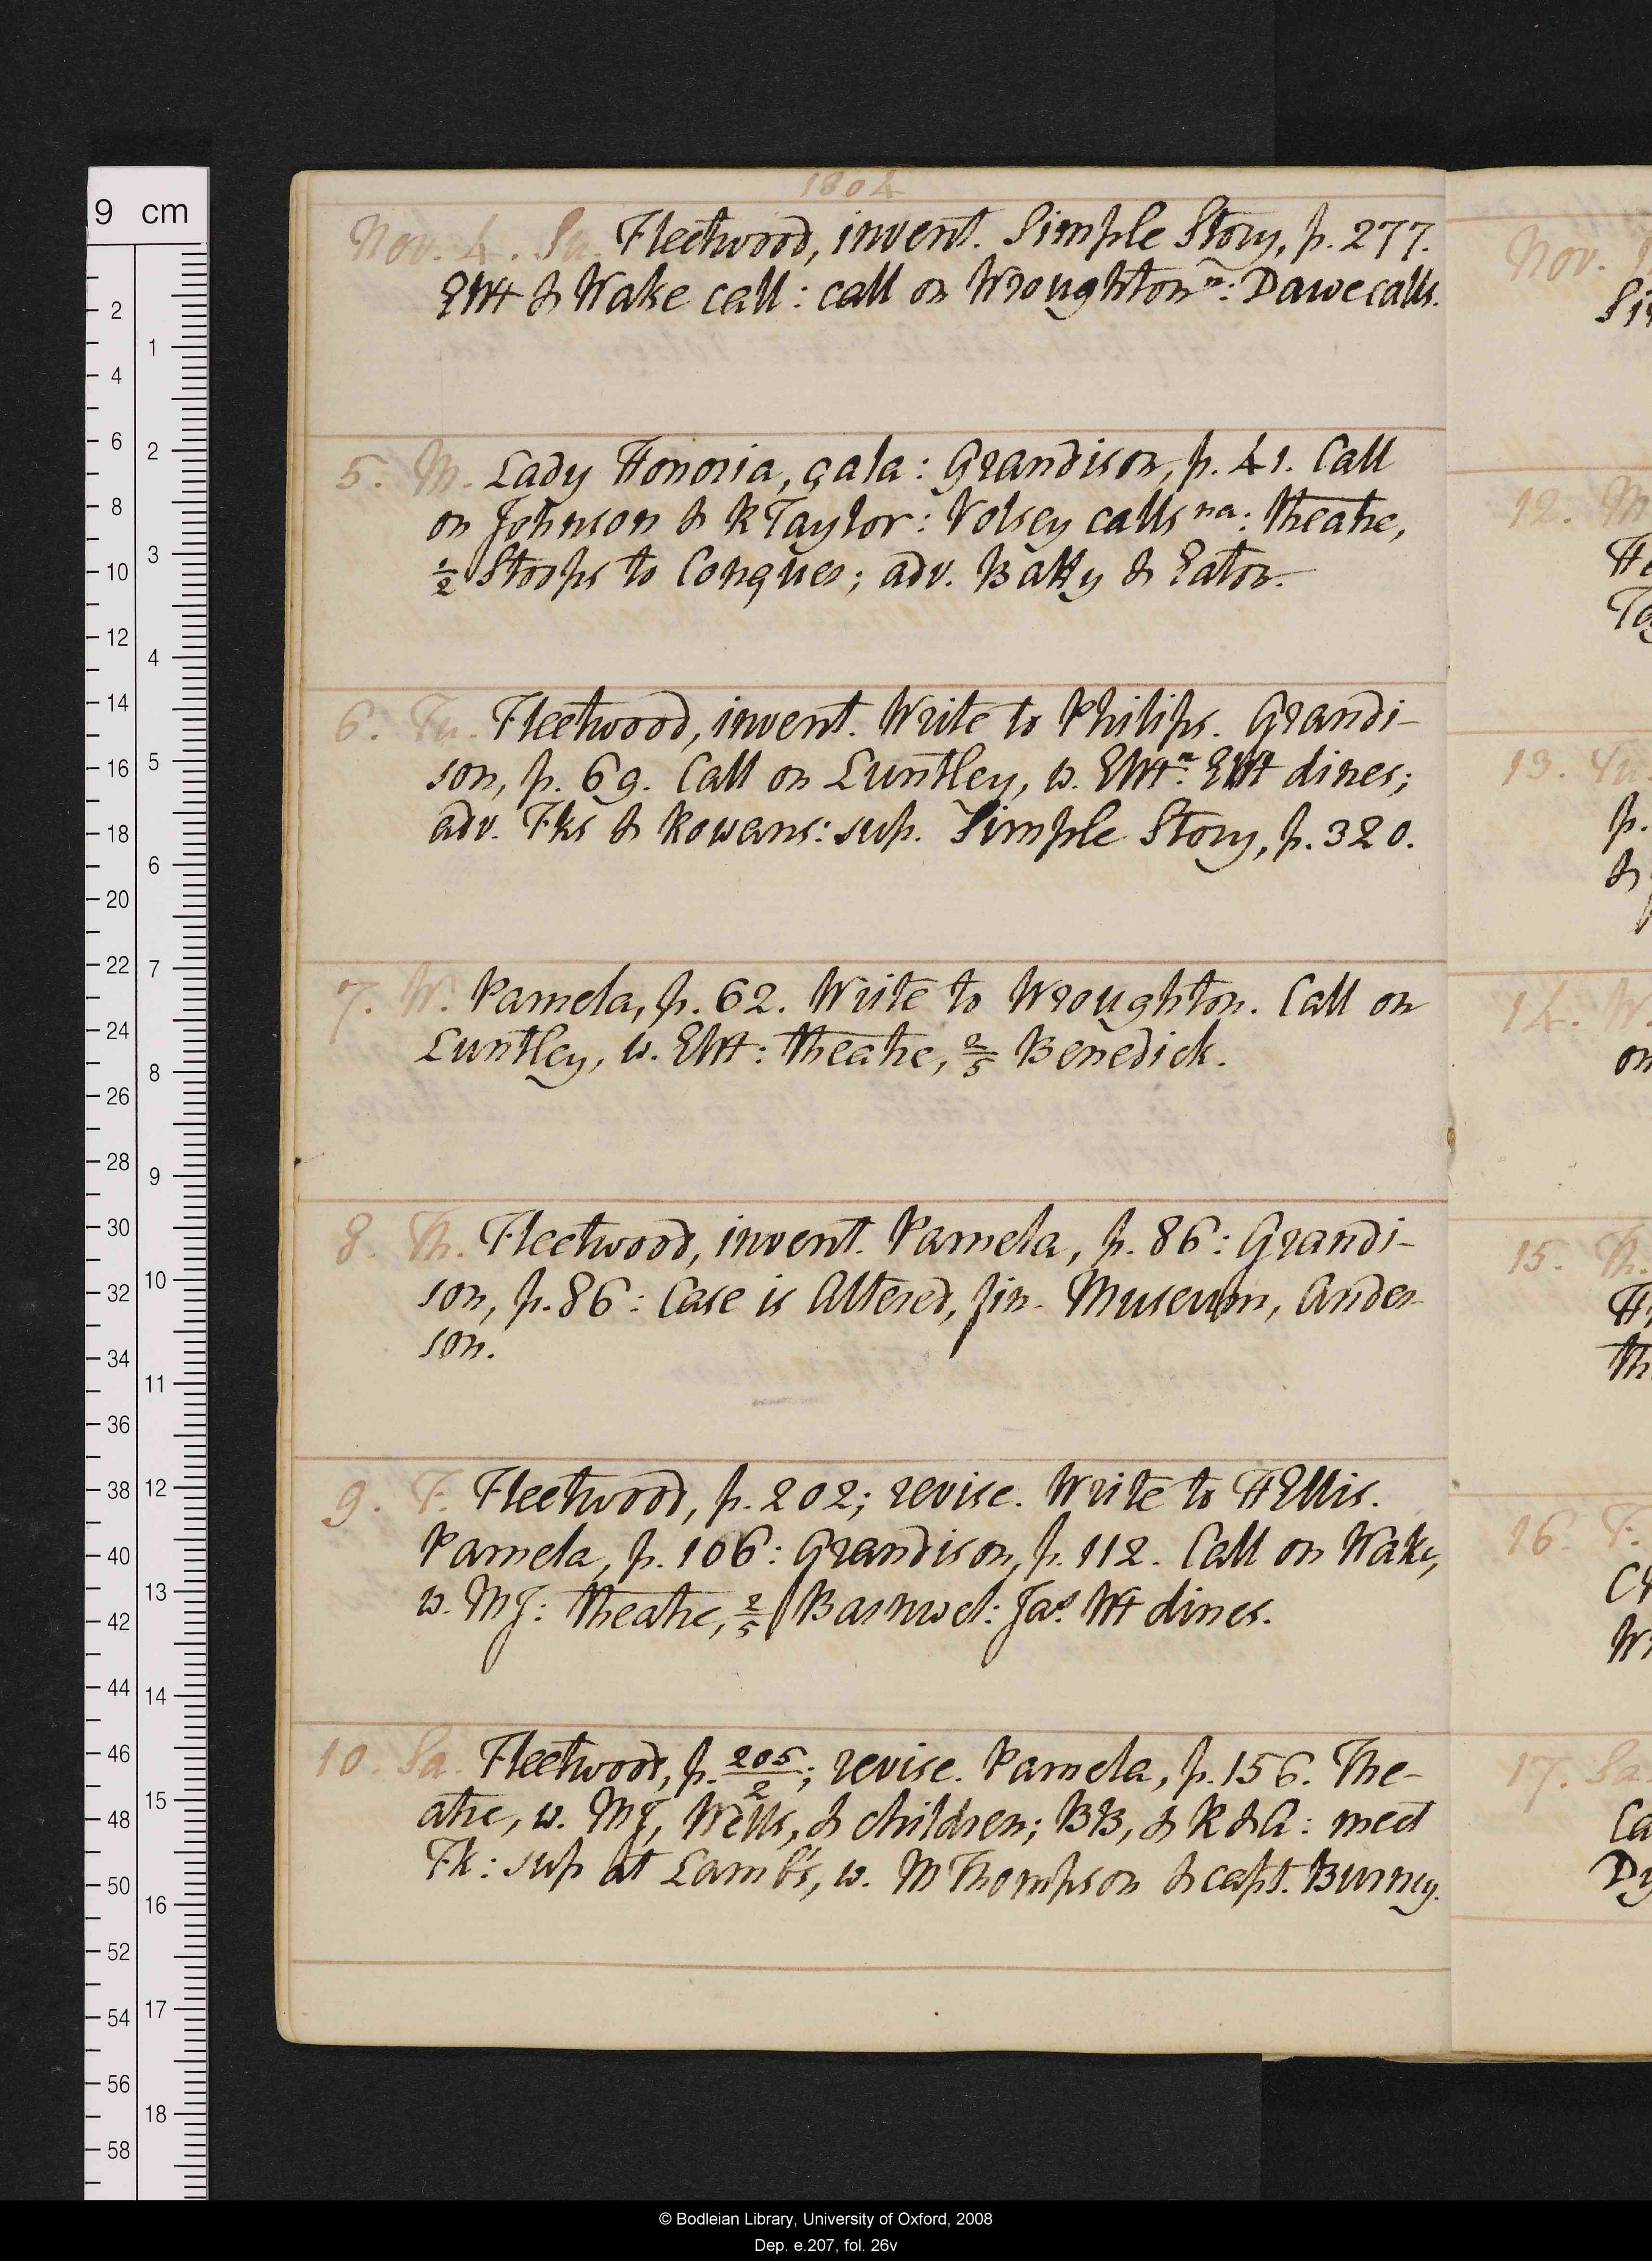 1804
Nov. 4. Su. Fleetwood, invent. Simple Story, p. 277.
EWt & Wake call: call on Wroughton n: Dawe calls.
5. M. Lady Honoria, gala: Grandison, p. 41. Call
on Johnson & RTaylor: Volsey calls na: theatre,
1/2 Stoops to Conquer; adv. Batty & Eaton.
6. Tu. Fleetwood, invent. Write to Philips. Grandi-
son, p. 69. Call on Luntley, w. EWt n: EWt dines;
adv. Fks & Rowans: sup. Simple Story, p. 320.
7. W. Pamela, p. 62. Write to Wroughton. Call on
Luntley, w. EWt: theatre, 2/5 Benedick.
8. Th. Fleetwood, invent. Pamela, p. 86: Grandi-
son, p. 86: Case is Altered, fin. Museum, Ander-
son.
9. F. Fleetwood, p. 202; revise. Write to HEllis.
Pamela, p. 106: Grandison, p. 112. Call on Wake,
w. MJ: theatre, 2/5 Barnwel: Jas. Wt dines.
10. Sa. Fleetwood, p. 205/2; revise. Pamela, p. 156. The-
atre, w. MJ, Wells, & children; BB, & R & A: meet
Fk: sup at Lamb's, w. MThompson & capt. Burney.
Nov.
12. M
13. Tu
p.
&
14. W.
on
15. Th.
th
16. F.
17. Sa
Ca
Dy
9 cm
2
4
6
8
10
12
14
16
18
20
22
24
26
28
30
32
34
36
38
40
42
44
46
48
50
52
54
56
58
1
2
3
4
5
6
7
8
9
10
11
12
13
14
15
16
17
18
© Bodleian Library, University of Oxford, 2008
Dep. e.207, fol. 26v